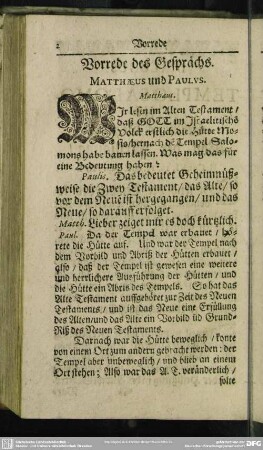 2 Vorrede
Vorrede des Gesprächs.
MATTHÆUS und PAULVS.
Matthæus.
WJr lesen im Alten Testament /
daß GOTT im Jsraelitischē
Volck erstlich die Hütte Mo-
sis/hernach dē Tempel Salo-
mons habe bauen lassen. Was mag das für
eine Bedeutung haben?
Paulus. Das bedeutet Geheimnüß-
weise die Zwey Testament / das Alte / so
vor dem Neuē ist hergegangen / und das
Neue / so darauff erfolget.
Matth. Lieber zeiget mir es doch kürtzlich.
Paul. Da der Tempel war erbauet / hö-
rete die Hütte auf. Und war der Tempel nach
dem Vorbild und Abriß der Hütten erbauet /
also / daß der Tempel ist gewesen eine weitere
und herrlichere Ausführung der Hütten / und
die Hütte ein Abris des Tempels. So hat das
Alte Testament aufgehöret zur Zeit des Neuen
Testaments / und ist das Neue eine Erfüllung
des Alten/und das Alte ein Vorbild uñ Grund-
Riß des Neuen Testaments.
Darnach war die Hütte beweglich / konte
von einem Ort zum andern gebracht werden: der
Tempel aber unbeweglich / und blieb an einem
Ort stehen; Also war das A. T. veränderlich /
solte